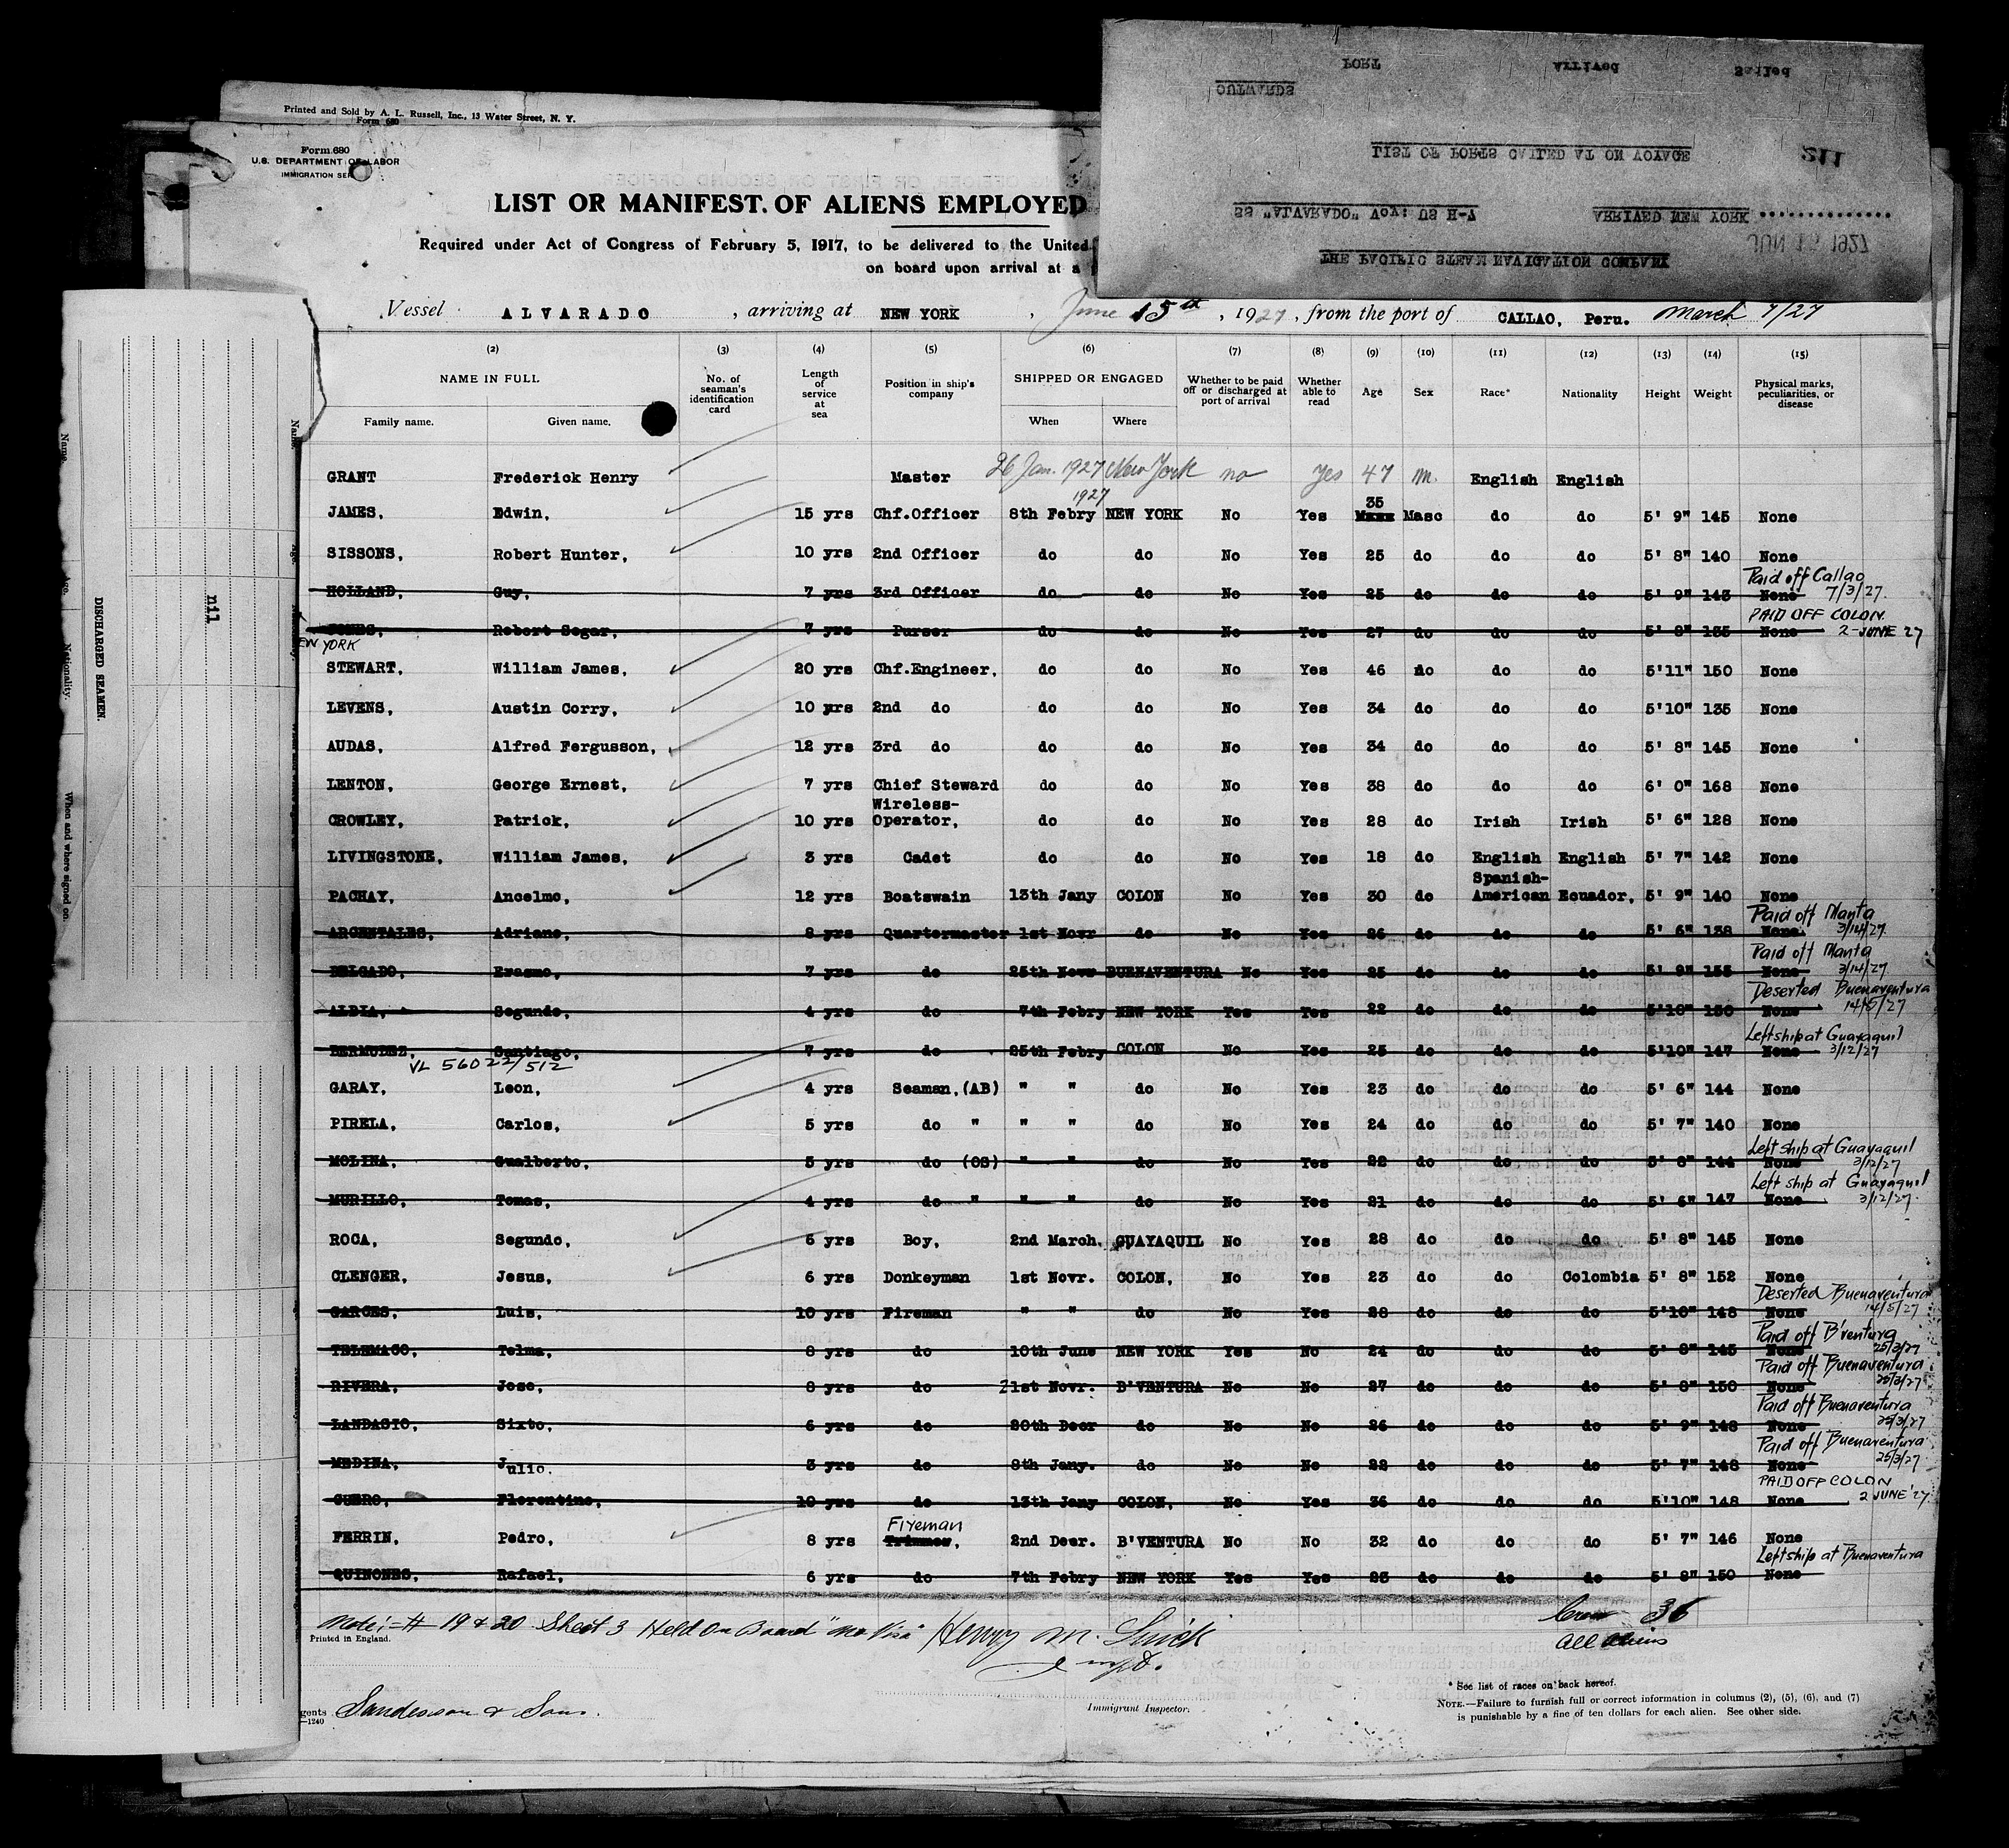 Printed and Sold by A. L. Russell, Inc., 13 Water Street, N. Y.
Form 680
Form 680
U.S. DEPARTMENT OF LABOR
IMMIGRATION SER
LIST OR MANIFEST OF ALIENS EMPLOYED
Required under Act of Congress of February 5, 1917, to be delivered to the United
on board upon arrival at a
THE PACIFIC STEAM NAVIGATION COMPANY
JUN 15 1927
SS "ALVARADO" Voy: US H-A ARRIVED NEW YORK
LIST OF PORTS CALLED AT ON VOYAGE 211
OUTWARDS
PORT Arrived Sailed
Vessel ALVARADO, arriving at NEW YORK, June 15th, 1927, from the port of CALLAO, Peru. March 7/27
(2) (3) (4) (5) (6) (7) (8) (9) (10) (11) (12) (13) (14) (15)
NAME IN FULL No. of seaman's identification card Length of service at sea Position in ship's company SHIPPED OR ENGAGED Whether to be paid off or discharged at port of arrival Whether able to read Age Sex Race* Nationality Height Weight Physical marks, peculiarities, or disease
Family name. Given name. When Where
GRANT Frederick Henry Master 26 Jan. 1927 New York no yes 47 m. English English
JAMES, Edwin, 15 yrs Chf.Officer 8th Febry 1927 NEW YORK No Yes 35 Masc do do 5' 9" 145 None
SISSONS, Robert Hunter, 10 yrs 2nd Officer do do No Yes 25 do do do 5' 8" 140 None
HOLLAND, Guy, 7 yrs 3rd Officer do do No Yes 25 do do do 5' 9" 143 None Paid off Callao 7/3/27.
JONES, Robert Segar, 7 yrs Purser do do No Yes 27 do do do 5' 8" 135 None PAID OFF COLON. 2-JUNE 27
EW YORK
STEWART, William James, 20 yrs Chf.Engineer, do do No Yes 46 do do do 5'11" 150 None
LEVENS, Austin Corry, 10 yrs 2nd do do do No Yes 34 do do do 5'10" 135 None
AUDAS, Alfred Fergusson, 12 yrs 3rd do do do No Yes 34 do do do 5' 8" 145 None
LENTON, George Ernest, 7 yrs Chief Steward do do No Yes 38 do do do 6' 0" 168 None
CROWLEY, Patrick, 10 yrs Wireless-Operator, do do No Yes 28 do Irish Irish 5' 6" 128 None
LIVINGSTONE, William James, 3 yrs Cadet do do No Yes 18 do English English 5' 7" 142 None
PACHAY, Ancelmo, 12 yrs Boatswain 13th Jany COLON No Yes 30 do Spanish-American Ecuador, 5' 9" 140 None
ARGENTALES, Adriano, 8 yrs Quartermaster 1st Novr do No Yes 26 do do do 5' 6" 138 None Paid off Manta 3/14/27.
DELGADO, Erasmo, 7 yrs do 25th Novr BUENAVENTURA No Yes 25 do do do 5' 9" 155 None Paid off Manta 3/14/27
ALBIA, Segundo, 4 yrs do 7th Febry NEW YORK Yes Yes 22 do do do 5'10" 150 None Deserted Buenaventura 14/5/27
BERMUDEZ, Santiago, 7 yrs do 25th Febry COLON No Yes 25 do do do 5'10" 147 None Left ship at Guayaquil 3/12/27
VL 56022/512
GARAY, Leon, 4 yrs Seaman,(AB) " " do No Yes 23 do do do 5' 6" 144 None
PIRELA, Carlos, 5 yrs do " " " do No Yes 24 do do do 5' 7" 140 None
MOLINA, Gualberto, 5 yrs do (OS) " " do No Yes 22 do do do 5' 8" 144 None Left ship at Guayaquil 3/12/27
MURILLO, Tomas, 4 yrs do " " " do No Yes 21 do do do 5' 6" 147 None Left ship at Guayaquil 3/12/27.
ROCA, Segundo, 6 yrs Boy, 2nd March. GUAYAQUIL No Yes 28 do do do 5' 8" 145 None
CLENGER, Jesus, 6 yrs Donkeyman 1st Novr. COLON, No Yes 23 do do Colombia 5' 8" 152 None
GARCES, Luis, 10 yrs Fireman " " do No Yes 28 do do do 5'10" 148 None Deserted Buenaventura 14/5/27
TELEMACO, Telma, 8 yrs do 10th June NEW YORK Yes No 24 do do do 5' 8" 145 None Paid off B'ventura 25/3/27
RIVERA, Jose, 8 yrs do 21st Novr. B'VENTURA No No 27 do do do 5' 8" 150 None Paid off Buenaventura 25/3/27
LANDASIO, Sixto, 6 yrs do 20th Decr do No No 26 do do do 5' 9" 148 None Paid off Buenaventura 25/3/27
MEDINA, Julio. 3 yrs do 8th Jany. do No No 22 do do do 5' 7" 148 None Paid off Buenaventura 25/3/27
CUERO, Florentino, 10 yrs do 13th Jany COLON, No Yes 36 do do do 5'10" 148 None PAID OFF COLON 2 JUNE '27
FERRIN, Pedro, 8 yrs Fireman Trimmer, 2nd Decr. B'VENTURA No No 32 do do do 5' 7" 146 None
QUINONES, Rafael, 6 yrs do 7th Febry NEW YORK Yes Yes 23 do do do 5' 8" 150 None Left ship at Buenaventura
Note:- # 19 & 20 Sheet 3 Held On Board "No Visa" Henry M.
Insp.
Crew 36
all aliens
Printed in England.
gents Sanderson & Sons.
—1240
Immigrant Inspector.
* See list of races on back hereof.
NOTE.—Failure to furnish full or correct information in columns (2), (5), (6), and (7)
is punishable by a fine of ten dollars for each alien. See other side.
DISCHARGED SEAMEN.
nil
Name. Age. Nationality. When and where signed on.